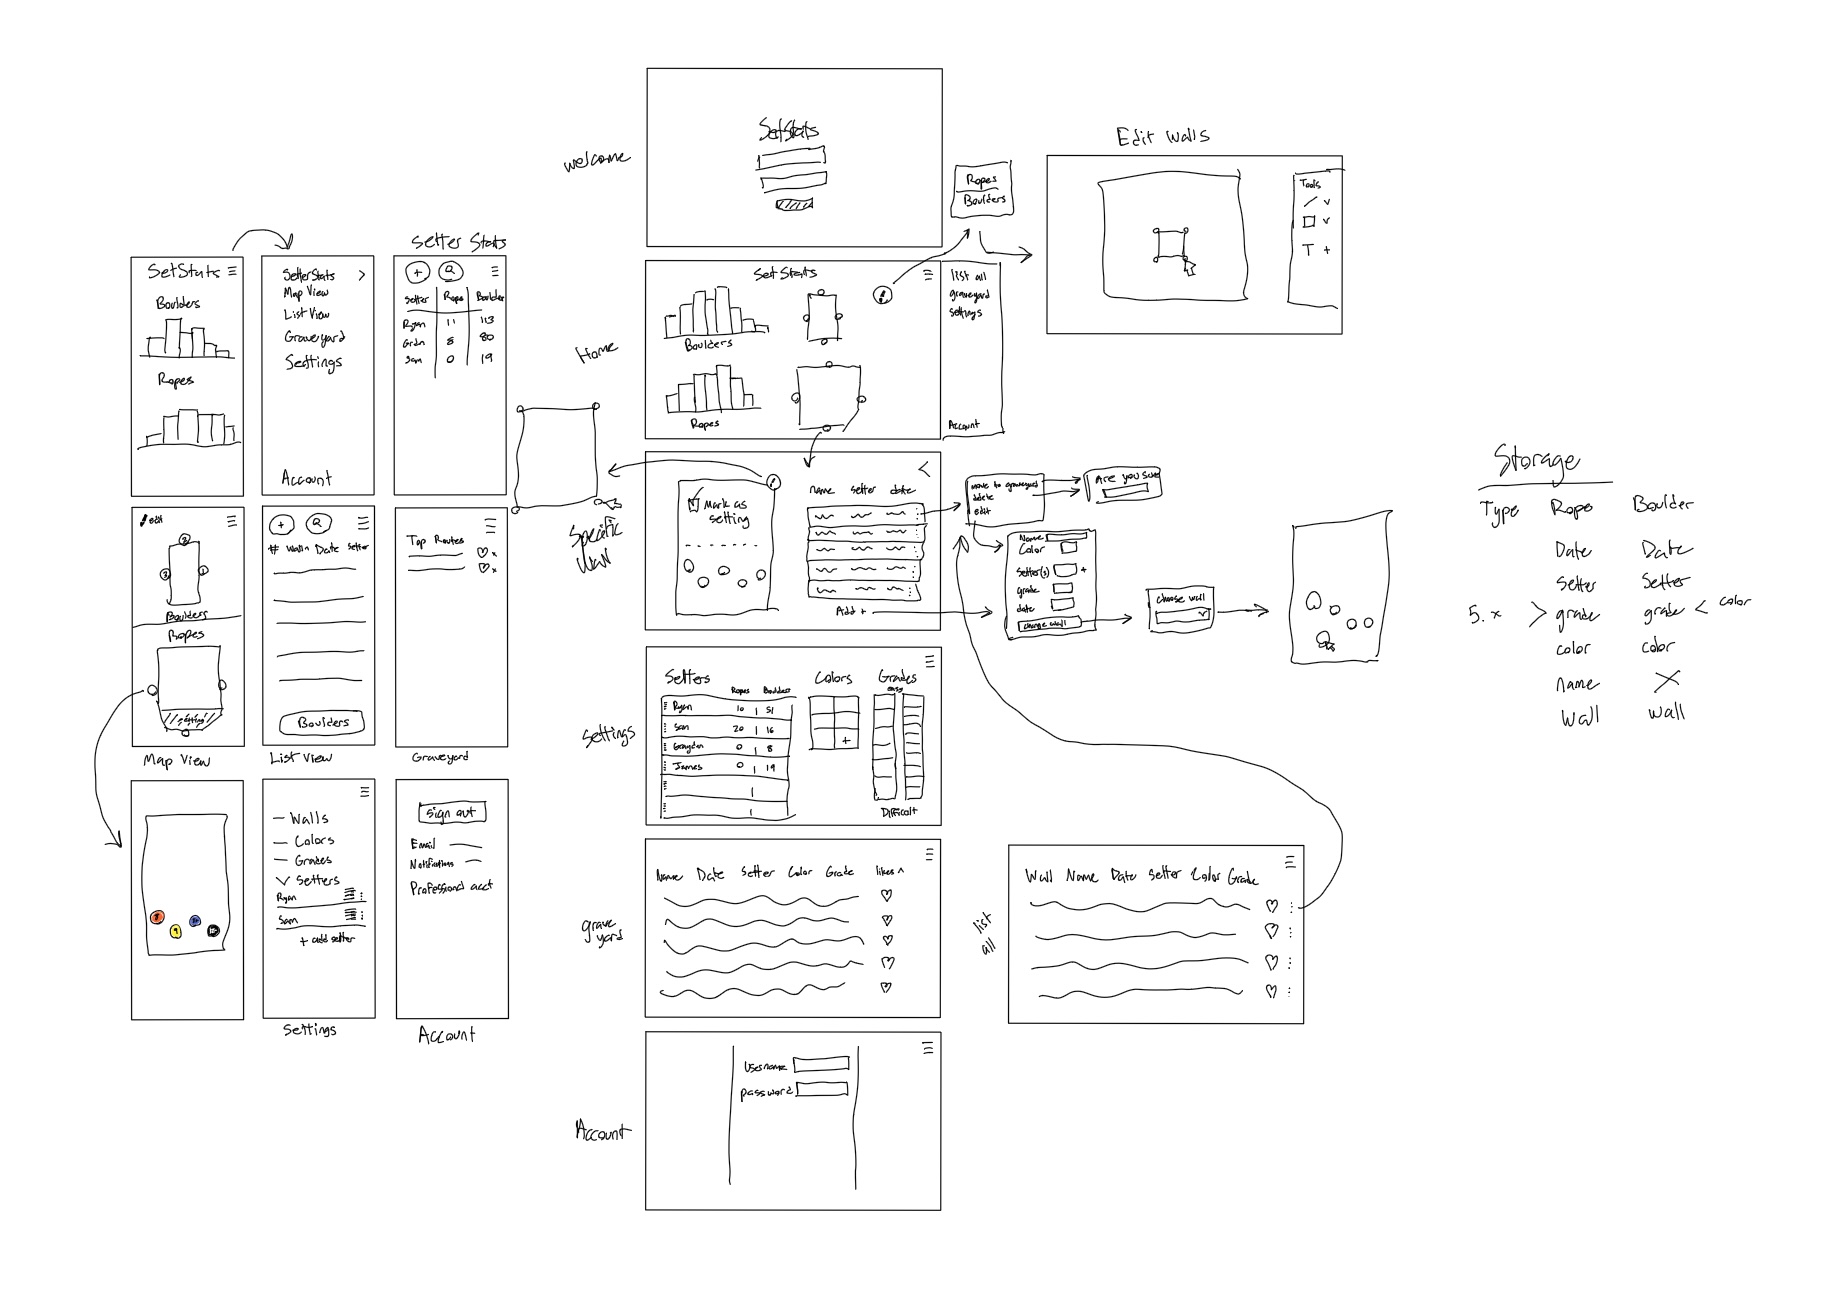 SetStats
Boulders
Ropes
SetterStats >
Map View
List View
Graveyard
Settings
Account
Setter Stats
+
Setter Rope Boulder
Ryan 11 113
Grdn 8 80
Sam 0 19
edit
2
3 1
Boulders
Ropes
setting
Map View
+
# Walln Date Setter
Boulders
List View
Top Routes
x
x
Graveyard
Walls
Colors
Grades
Setters
Ryan
Sam
+ add setter
Settings
Sign out
Email
Notifications
Professional acct
Account
welcome
SetStats
Home
SetStats
Boulders
Ropes
list all
graveyard
settings
Account
Ropes
Boulders
Edit Walls
Tools
T +
Specific Wall
Mark as
setting
name setter date
Add +
move to graveyard
delete
edit
Are you sure
Name
Color
Setter(s) +
grade
date
change wall
choose wall
settings
Setters
Ropes Boulders
Ryan 10 51
Sam 20 16
Graydon 0 8
James 0 19
Colors
+
Grades
easy
Difficult
grave
yard
Name Date Setter Color Grade likes ^
list
all
Wall Name Date Setter Color Grade
Account
Username
password
Storage
Type Rope Boulder
Date Date
Setter Setter
5.x > grade grade < color
color color
name X
Wall Wall